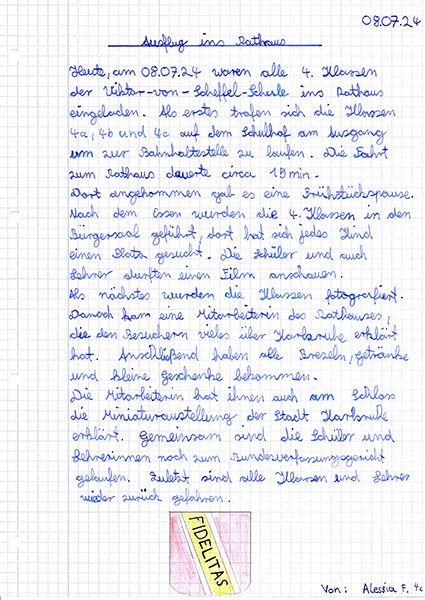 08.07.24
Ausflug ins Rathaus
Heute, am 08.07.24 waren alle 4. Klassen
der Viktor-von-Scheffel-Schule ins Rathaus
eingeladen. Als erstes trafen sich die Klassen
4a, 4b und 4c auf dem Schulhof am Ausgang
um zur Bahnhaltestelle zu laufen. Die Fahrt
zum Rathaus dauerte circa 15 min.
Dort angekommen gab es eine Frühstückspause.
Nach dem Essen wurden die 4. Klassen in den
Bürgersaal geführt, dort hat sich jedes Kind
einen Platz gesucht. Die Schüler und auch
Lehrer durften einen Film anschauen.
Als nächstes wurden die Klassen fotografiert.
Danach kam eine Mitarbeiterin des Rathauses,
die den Besuchern vieles über Karlsruhe erklärt
hat. Anschließend haben alle Brezeln, getränke
und kleine Geschenke bekommen.
Die Mitarbeiterin hat ihnen auch am Schloss
die Miniaturaustellung der Stadt Karlsruhe
erklärt. Gemeinsam sind die Schüler und
Lehrerinnen noch zum Bundesverfassungsgericht
gelaufen. Zuletzt sind alle Klassen und Lehrer
wieder zurück gefahren.
FIDELITAS
Von: Alessia F. 4c